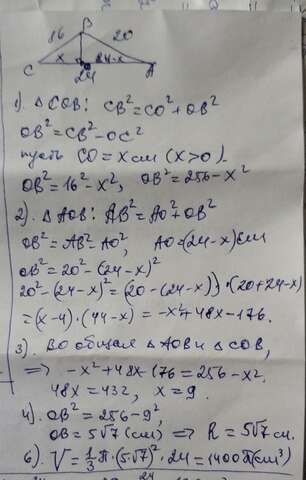 B
16 20
x 24-x
C 24 A
1). △COB: CB²=CO²+OB²
OB²=CB²-OC²
пусть CO=x см (x>0).
OB²=16²-x², OB²=256-x²
2). △AOB: AB²=AO²+OB²
OB²=AB²-AO², AO=(24-x)см
OB²=20²-(24-x)²
20²-(24-x)²=(20-(24-x))·(20+24-x)
=(x-4)·(44-x)=-x²+48x-176.
3). BO общая △AOB и △COB,
⟹ -x²+48x-176=256-x².
48x=432, x=9.
4). OB²=256-9²,
OB=5√7(см) ⟹ R=5√7см.
6). V=⅓π·(5√7)²·24=1400π(см³)